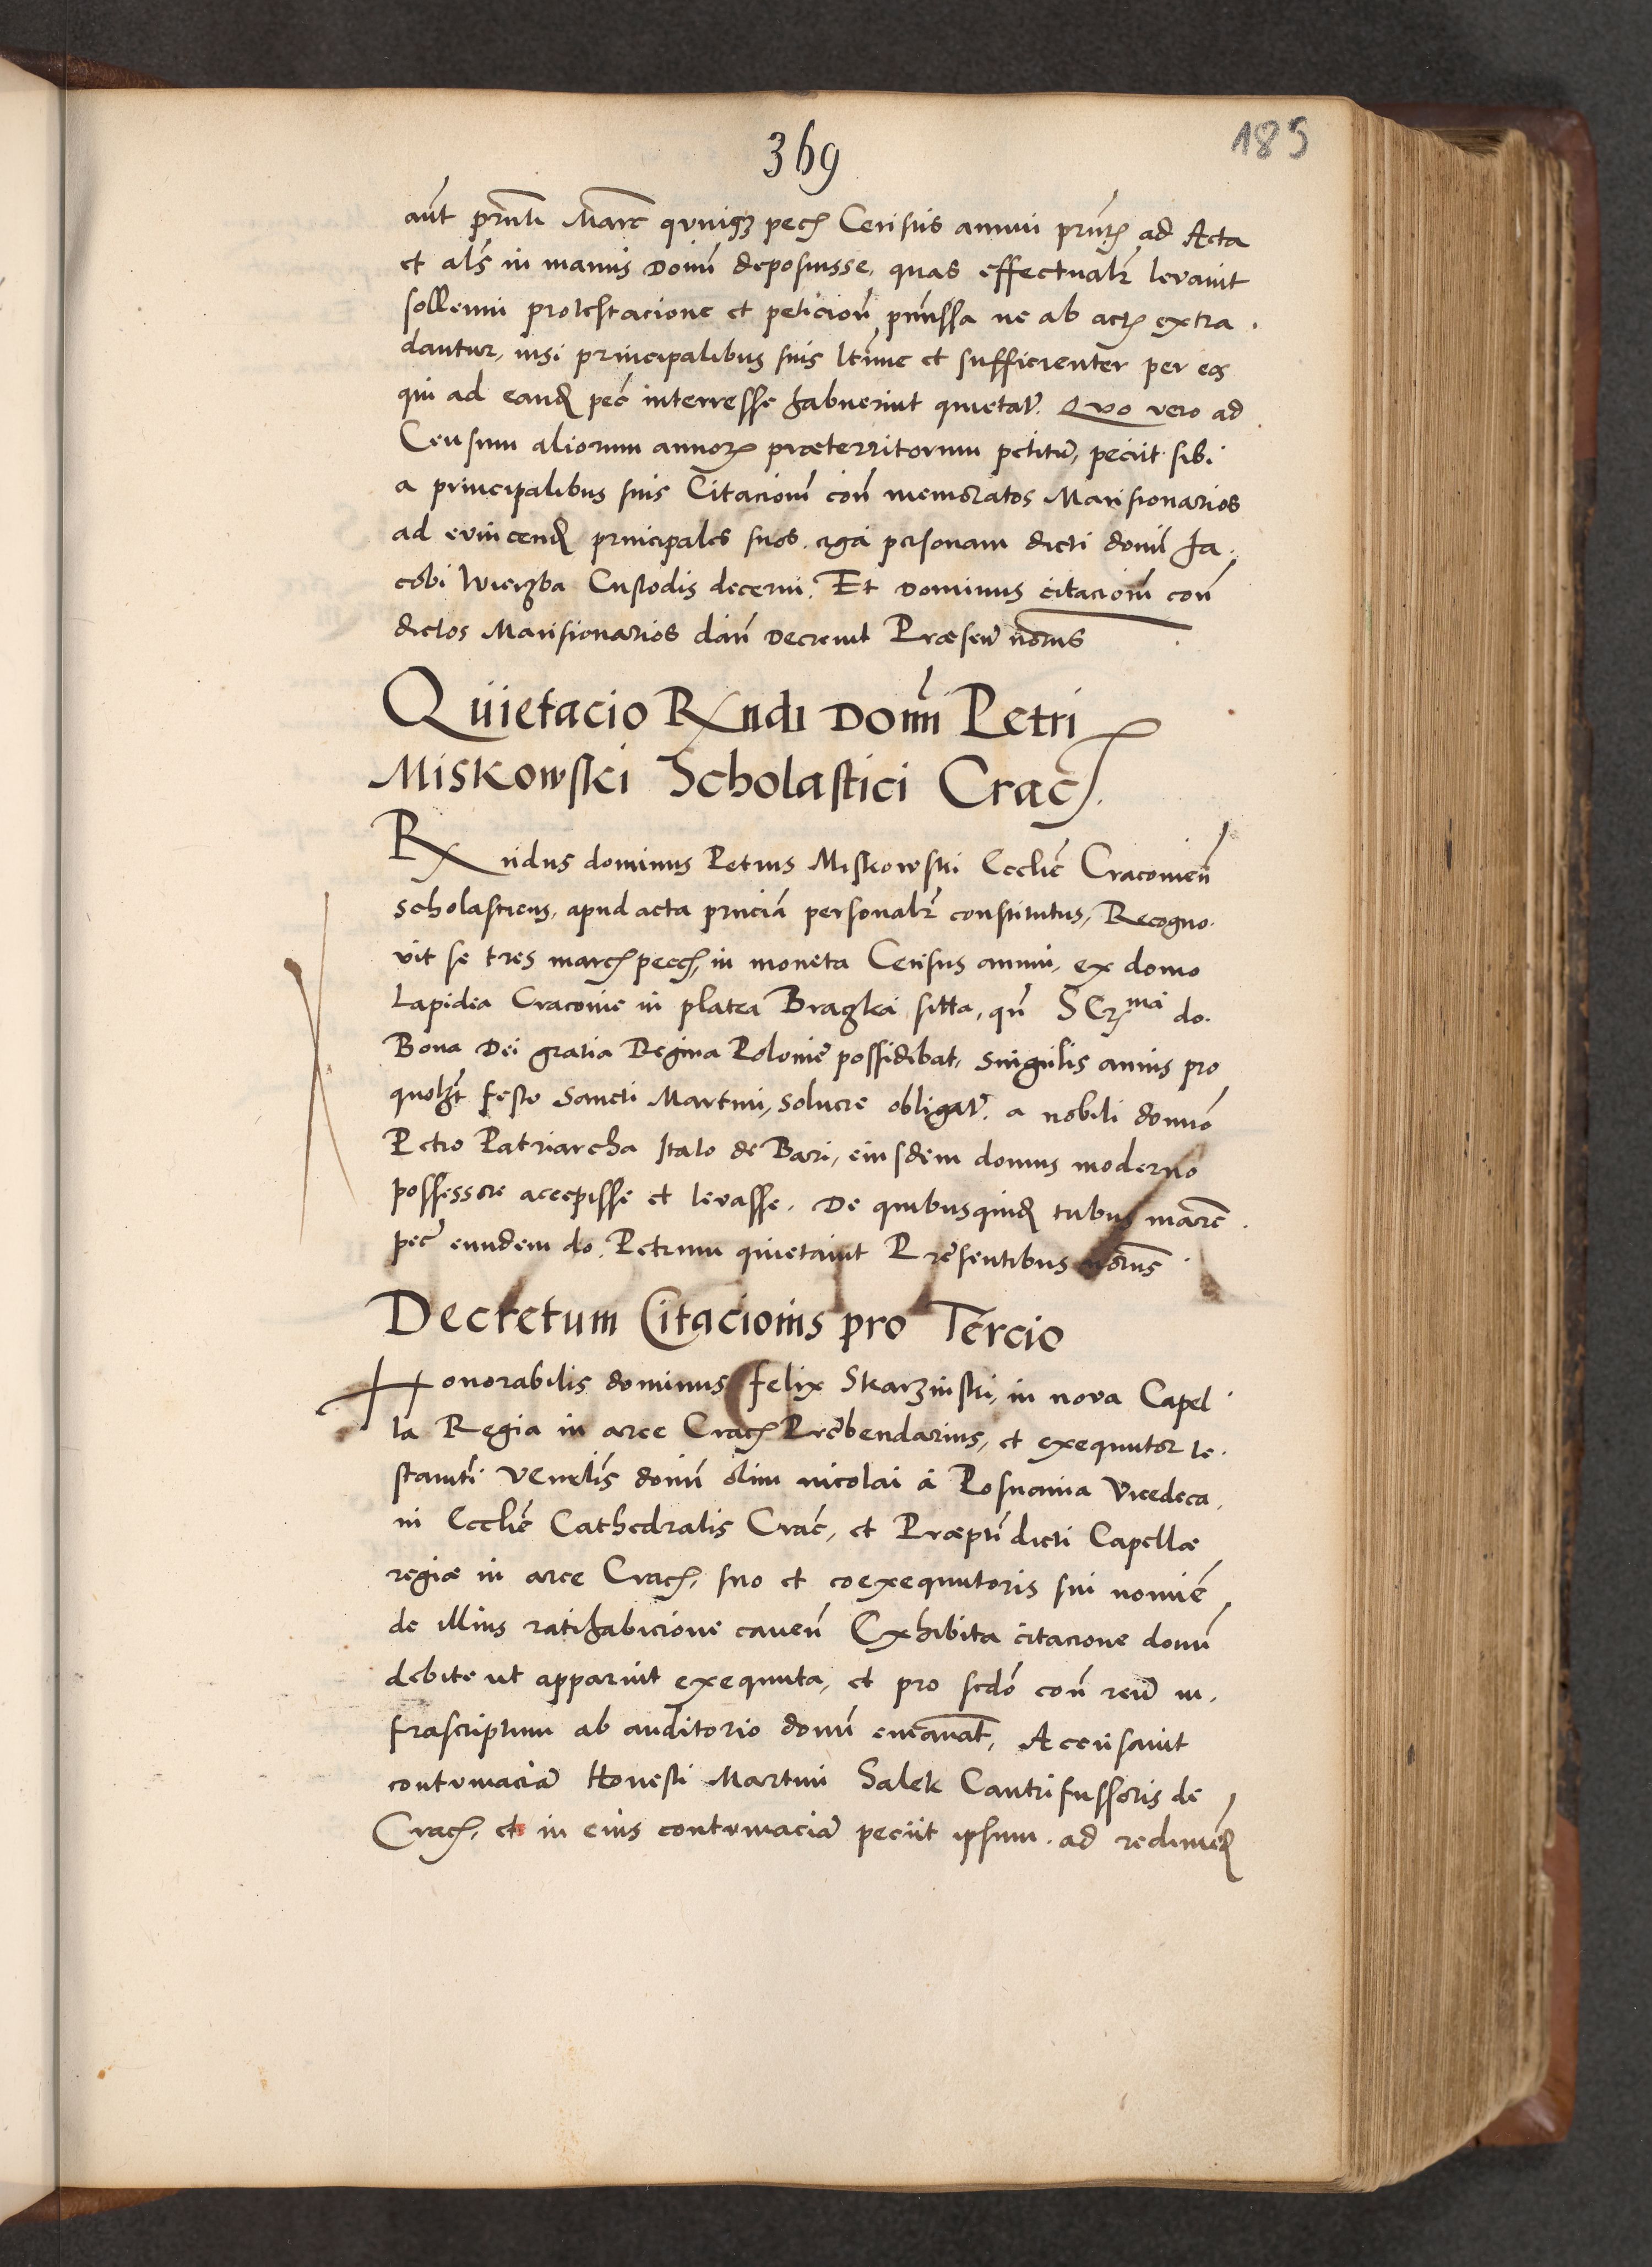 369
189
aūt pr̄nti Marc̄ qvinqȝ pecꝭ Census annui pr̄ntꝭ ad Acta
et als̄ in manus Domī deposuisse, quas effectualr̄ levavit
sollenni protestacione et peticioē p̄missa ne ab actꝭ extra
dantur, nisi principalibus suis ltīme et sufficienter per eos
qui ad eandꝭ pec̄ interresse habuerint quietat̄. Qvo vero ad
Censum aliorum annorꝝ præterritorum petitū, peciit sibi
a principalibus suis Citacionē con̄ memoratos Mansionarios
ad evincendꝭ principales suos erga personam dicti domī Ja
cobi Wierzba Custodis decerni. Et Dominus citacionē con̄
dictos Mansionarios dān̄ Decrevit Præsen̄ notariis
Quietacio Rndi Domī Petri
Miskowski Scholastici Cracꝭ.
Rndus dominus Petrus Miskowski Ecclīe Cracovien̄
Scholasticus, apud acta pnciā personalr̄ constitutus, Recogno
vit se tres marcꝭ peccꝭ, in moneta Census annui, ex domo
Lapidea Cracovie in platea Bragkā sitta, qn̄ SCrma do.
Bona Dei gratia Regina Polonie possidebat, singulis annis pro
quolȝt festo Sancti Martini, solvere obligat̄. a nobili domīo
Petro Patriarcha Italo de Bari, eiusdem domus moderno
possessore accepisse et levasse. De quibusquidꝭ tribus marc̄
pec̄ eundem do. Petrum quietavit Præsentibus notariis
Decretum Citacionis pro Tercio
Honorabilis dominus Felix Skarzinski, in nova Capel
la Regia in arce Cracꝭ Præbendarius, et exequutor te
stamēti Venelīs domī olim nicolai á Posnania Vicedeca
ni Ecclīe Cathedralis Crac̄, et Præpti dicti Capellæ
regiæ in arce Cracꝭ, suo et coexequutoris sui nomīe
de illius ratihabicione caven̄ Exhibita citacione domī
debite ut apparuit exequuta, et pro scdo con̄ reū in
frascriptum ab auditorio domī emanat̄, Accusavit
contumaciā Honesti Martini Salek Cantrifussoris de
Cracꝭ, et in eius contumaciā peciit ipsum ad redimēdꝭ